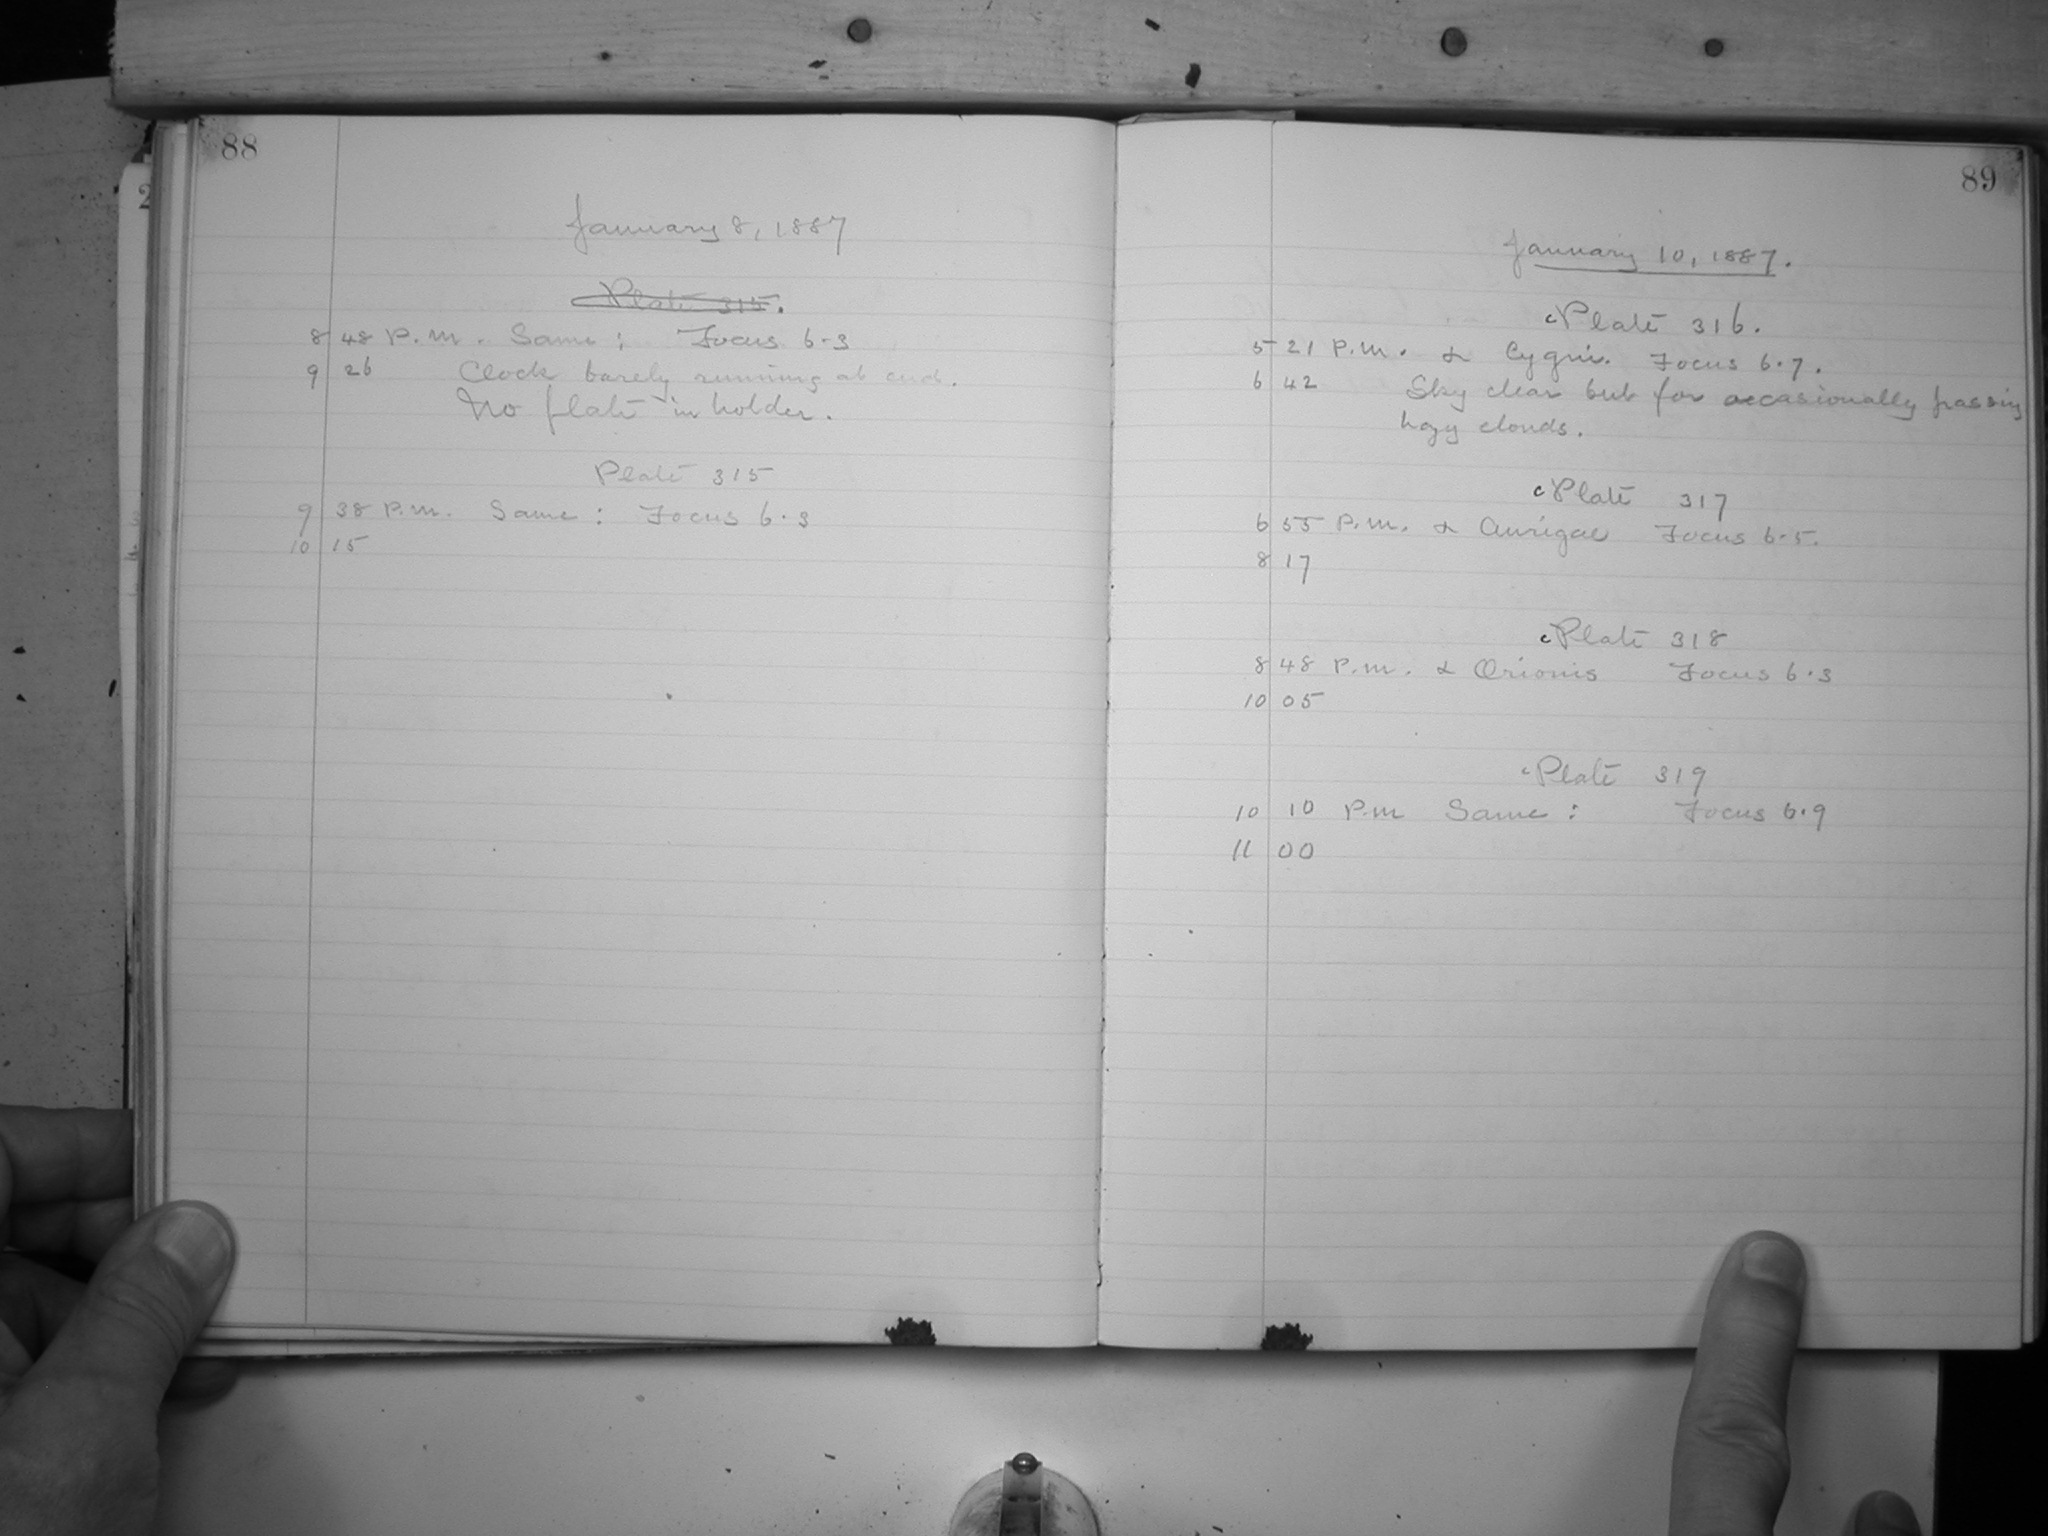 88
January 8, 1887
Plate 315.
8 48 P.M. Same: Focus 6.3
9 26 Clock barely running at end.
No plate in holder.
Plate 315
9 38 P.M. Same: Focus 6.3
10 15
89
January 10, 1887.
c Plate 316.
5 21 P.M. α Cygni. Focus 6.7.
6 42 Sky clear but for occasionally passing
hazy clouds.
c Plate 317
6 55 P.M. α Aurigae Focus 6.5.
8 17
c Plate 318
8 48 P.M. α Orionis Focus 6.3
10 05
c Plate 319
10 10 P.M Same: Focus 6.9
11 00
2